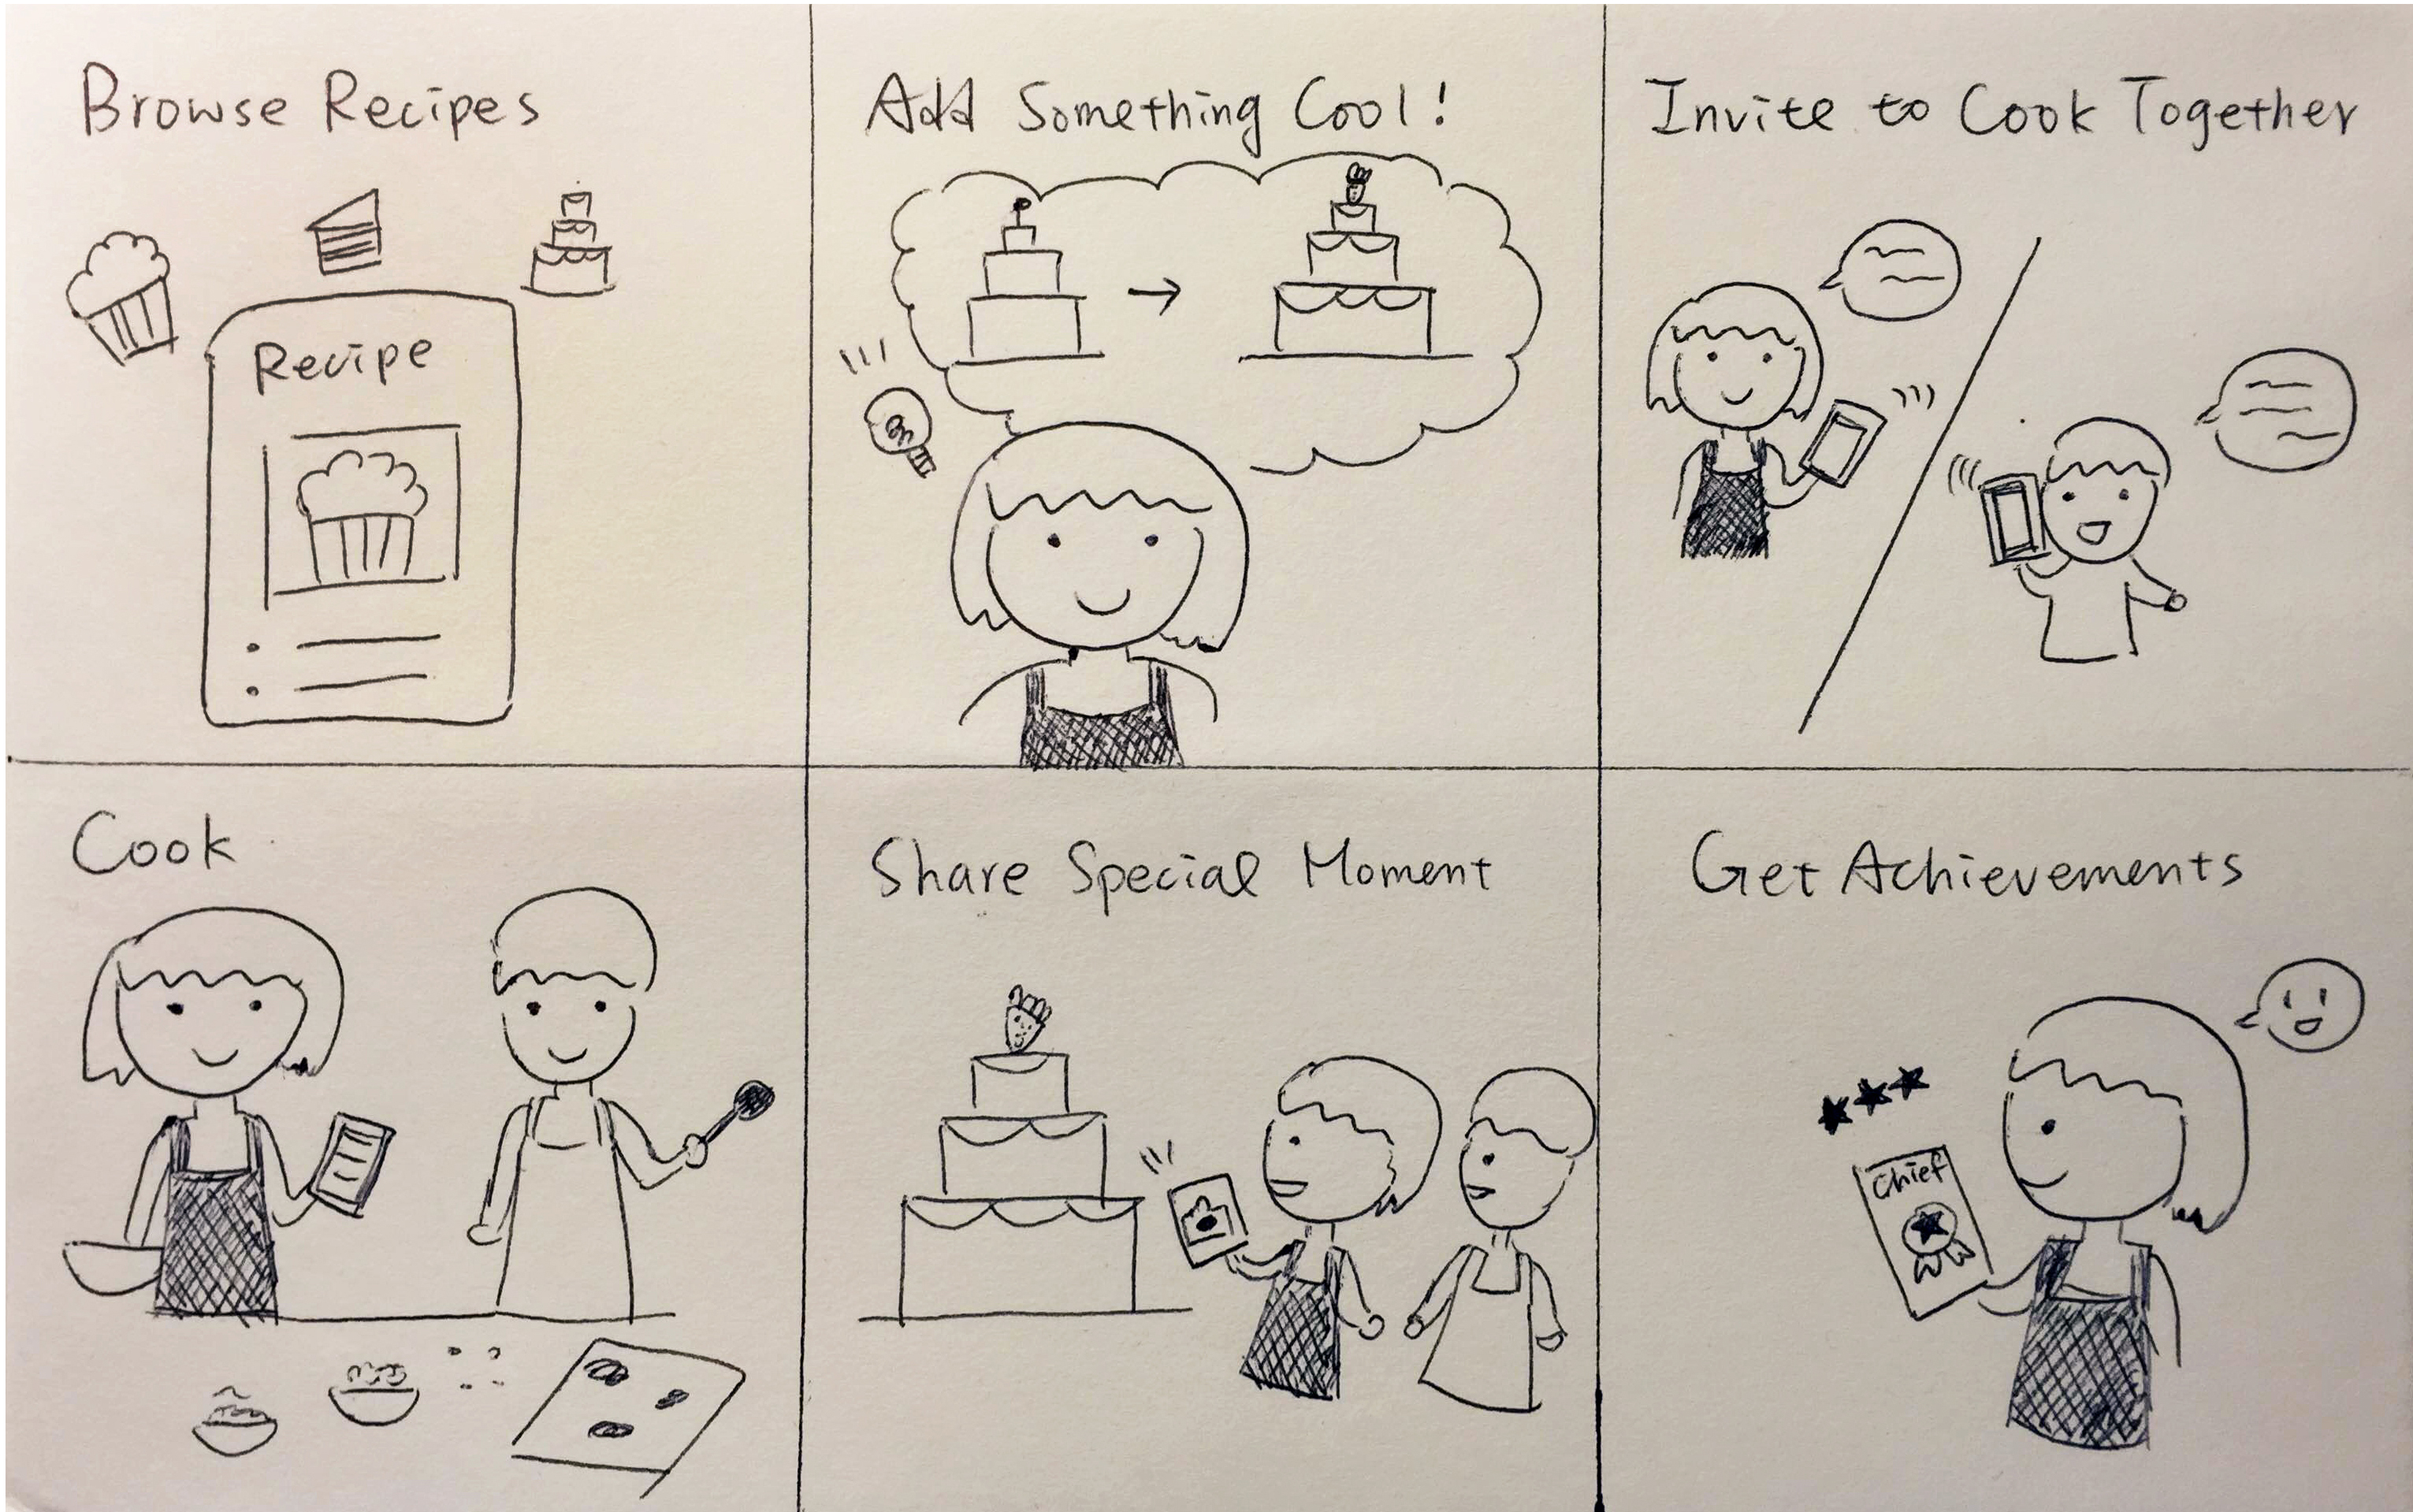 Browse Recipes
Recipe
Add Something Cool!
Invite to Cook Together
Cook
Share Special Moment
Get Achievements
Chief